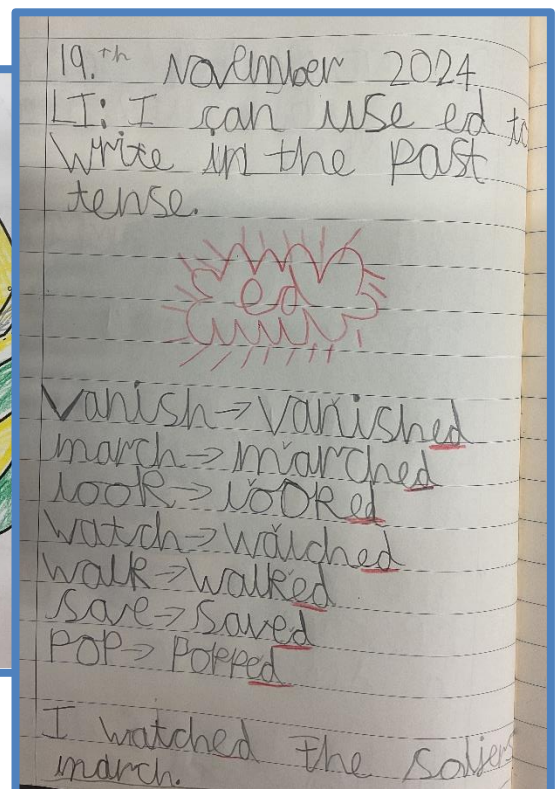 19.th November 2024
LI: I can use ed to
write in the past
tense.
ed
vanish→vanished
march→marched
look→looked
watch→watched
walk→walked
save→saved
pop→popped
I watched the soliers
march.